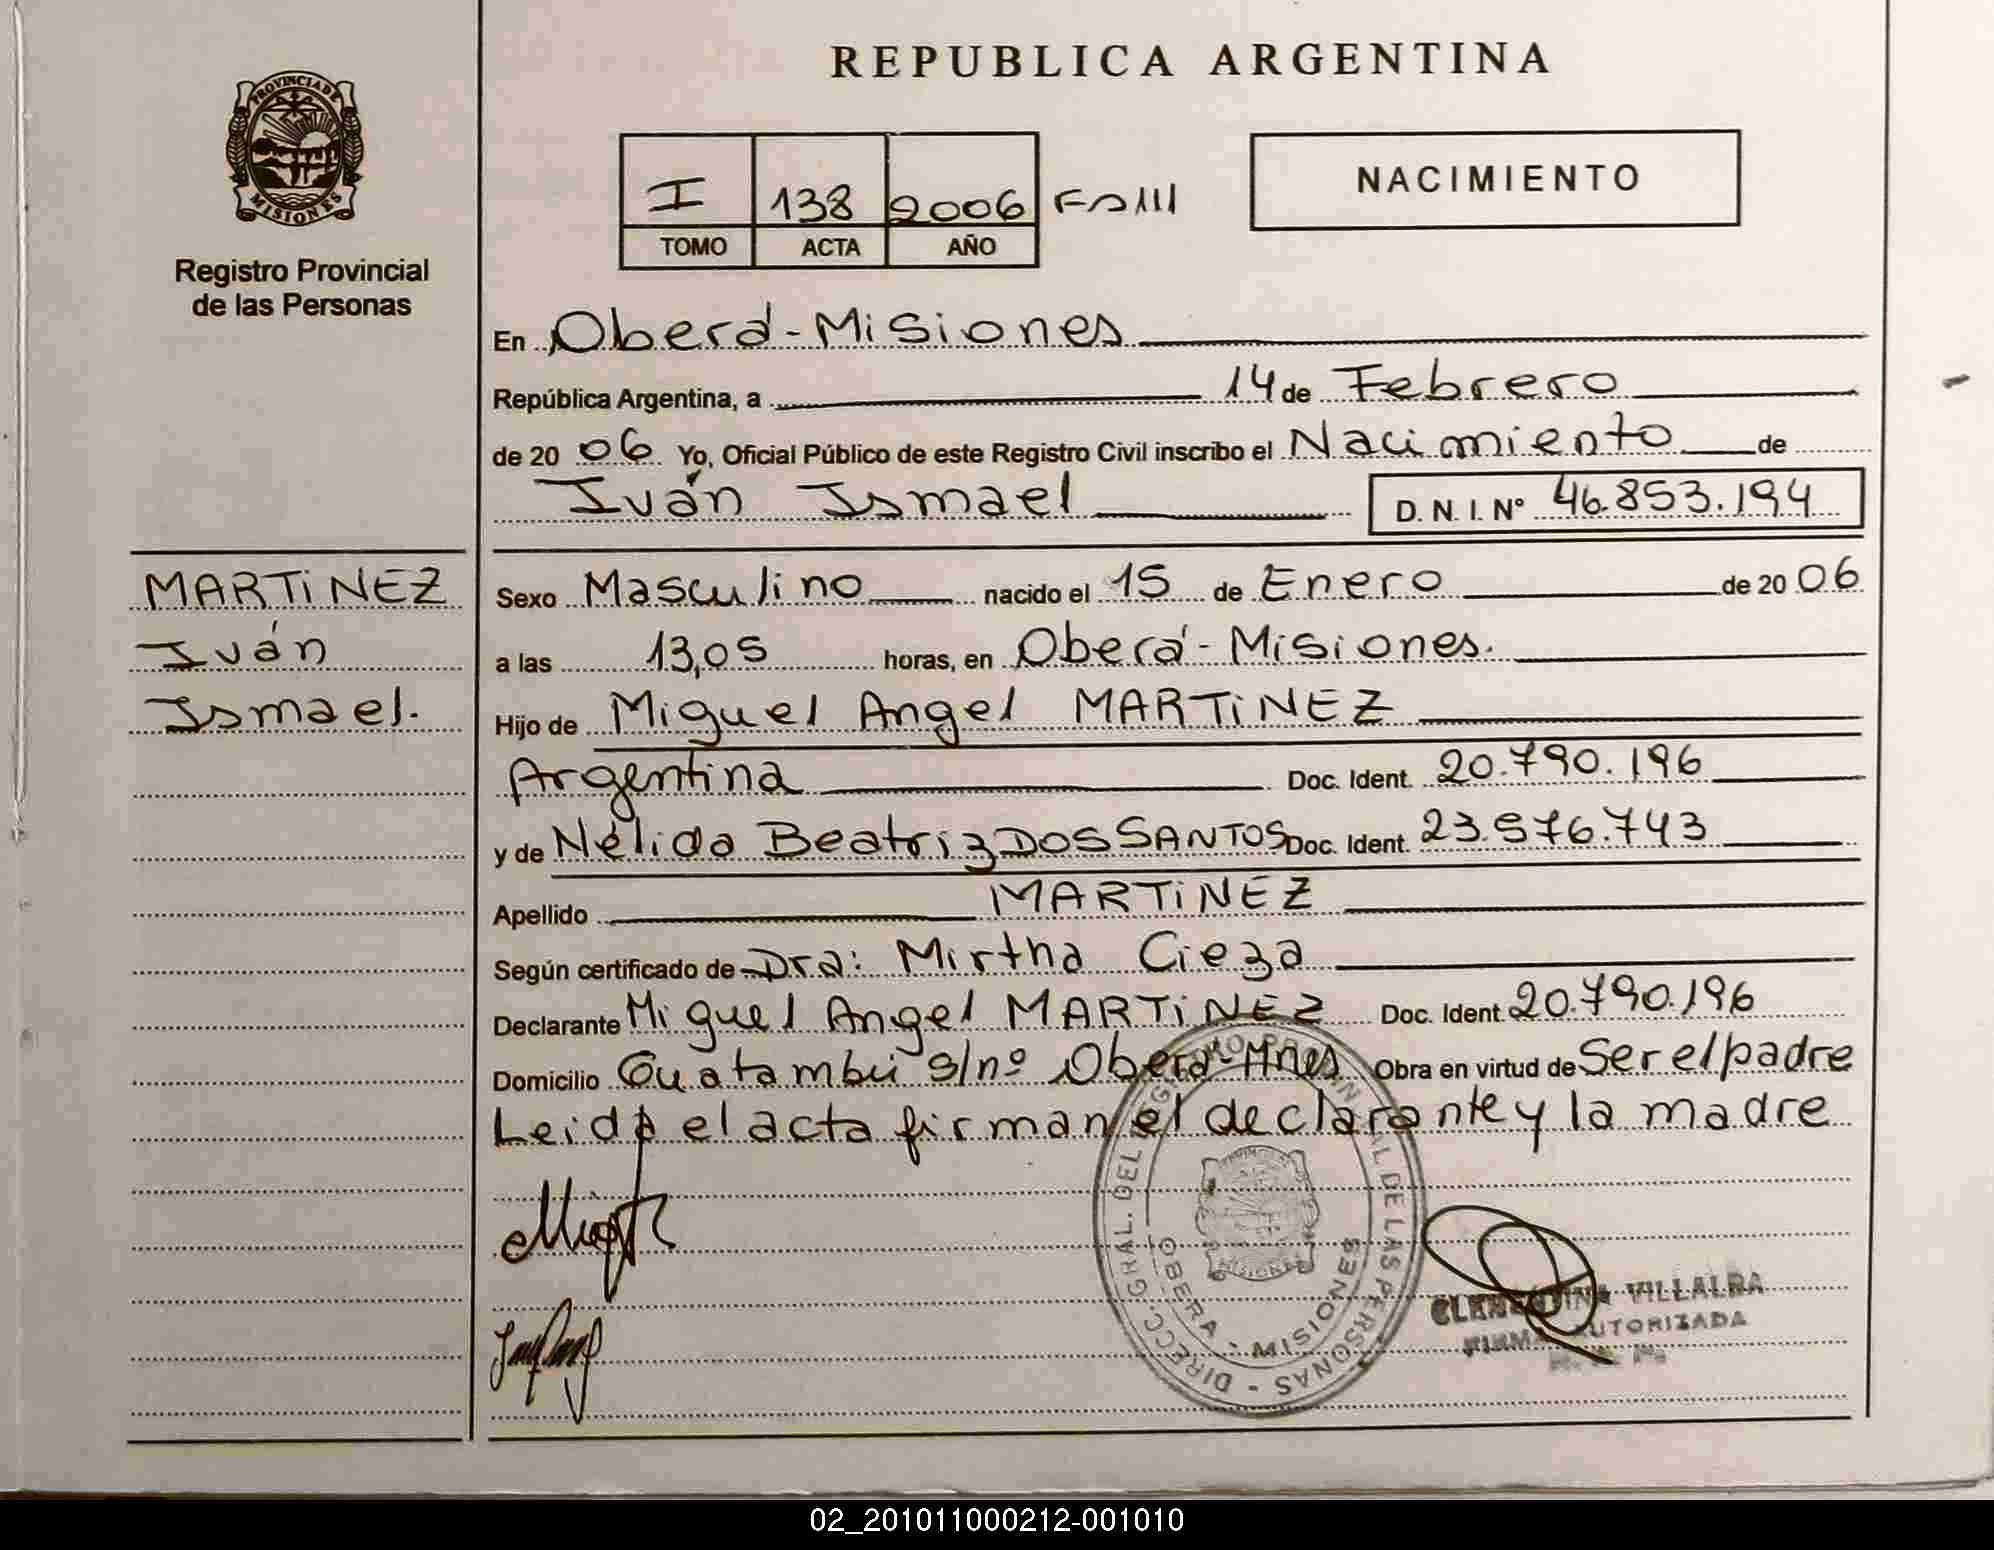 REPUBLICA ARGENTINA
PROVINCIA DE
MISIONES
Registro Provincial
de las Personas
I 138 2006 Fº 111
TOMO ACTA AÑO
NACIMIENTO
En Oberá - Misiones
República Argentina, a 14 de Febrero
de 20 06 Yo, Oficial Público de este Registro Civil inscribo el Nacimiento de
Iván Ismael D. N. I. Nº 46.853.194
MARTiNEZ
Iván
Ismael.
Sexo Masculino nacido el 15 de Enero de 20 06
a las 13,05 horas, en Oberá - Misiones.
Hijo de Miguel Angel MARTiNEZ
Argentina Doc. Ident. 20.790.196
y de Nélida Beatriz DOS SANTOS Doc. Ident. 23.576.743
Apellido MARTiNEZ
Según certificado de Dra: Mirtha Cieza
Declarante Miguel Angel MARTiNEZ Doc. Ident. 20.790.196
Domicilio Guatambú s/nº Oberá - Mnes Obra en virtud de Ser el padre
Leida el acta firman el declarante y la madre
DIRECC. GRAL. DEL REGISTRO PROVINCIAL DE LAS PERSONAS -
OBERA - MISIONES
MISIONES
CLEMENTINA VILLALBA
FIRMA AUTORIZADA
02_201011000212-001010